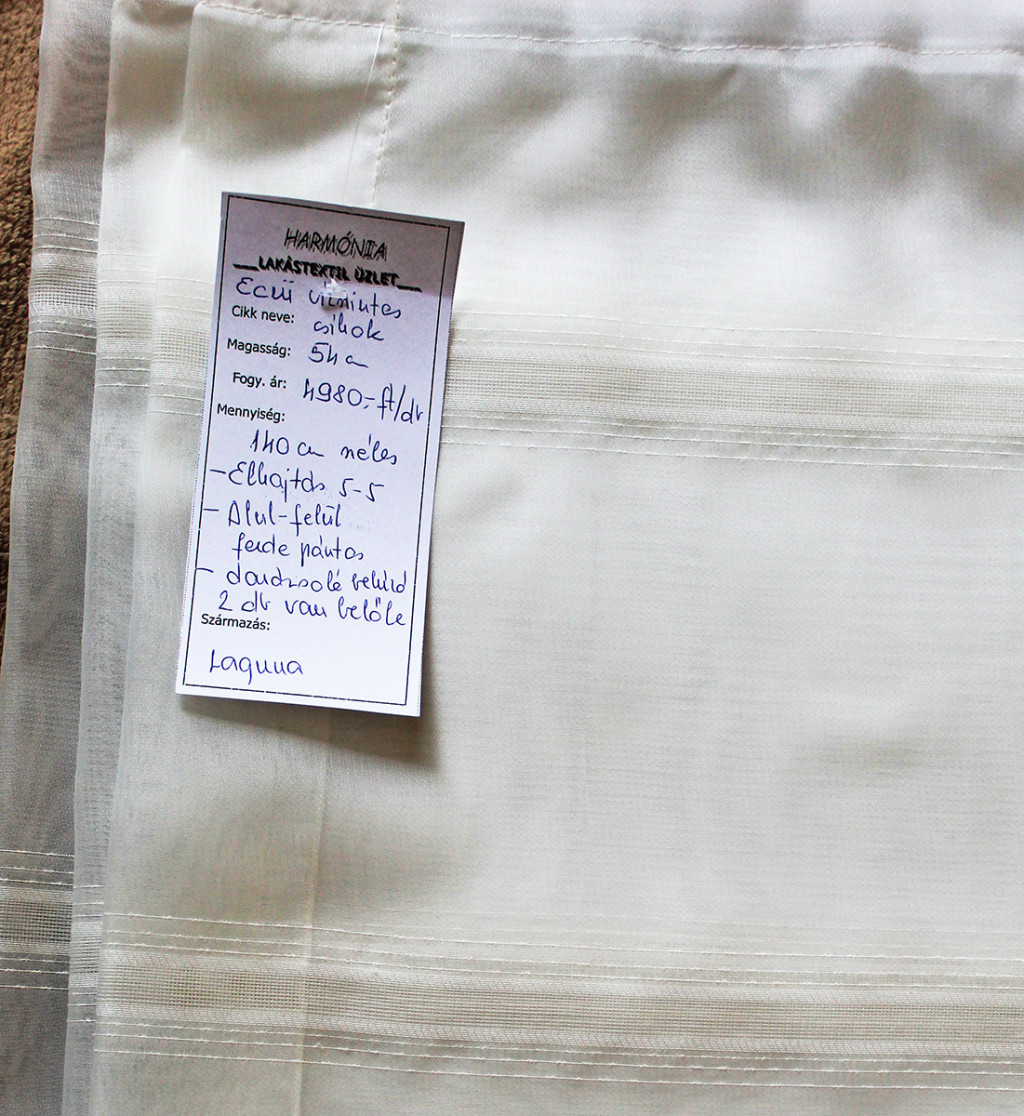 HARMÓNIA
LAKÁSTEXTIL ÜZLET
Ecrü vízmintás
Cikk neve: csíkok
Magasság: 54 cm
Fogy. ár: 4980,- ft/db
Mennyiség:
140 cm széles
- Elhajtás 5-5
- Alul-felül
ferde pántos
-
2 db van belőle
Származás:
Laguna